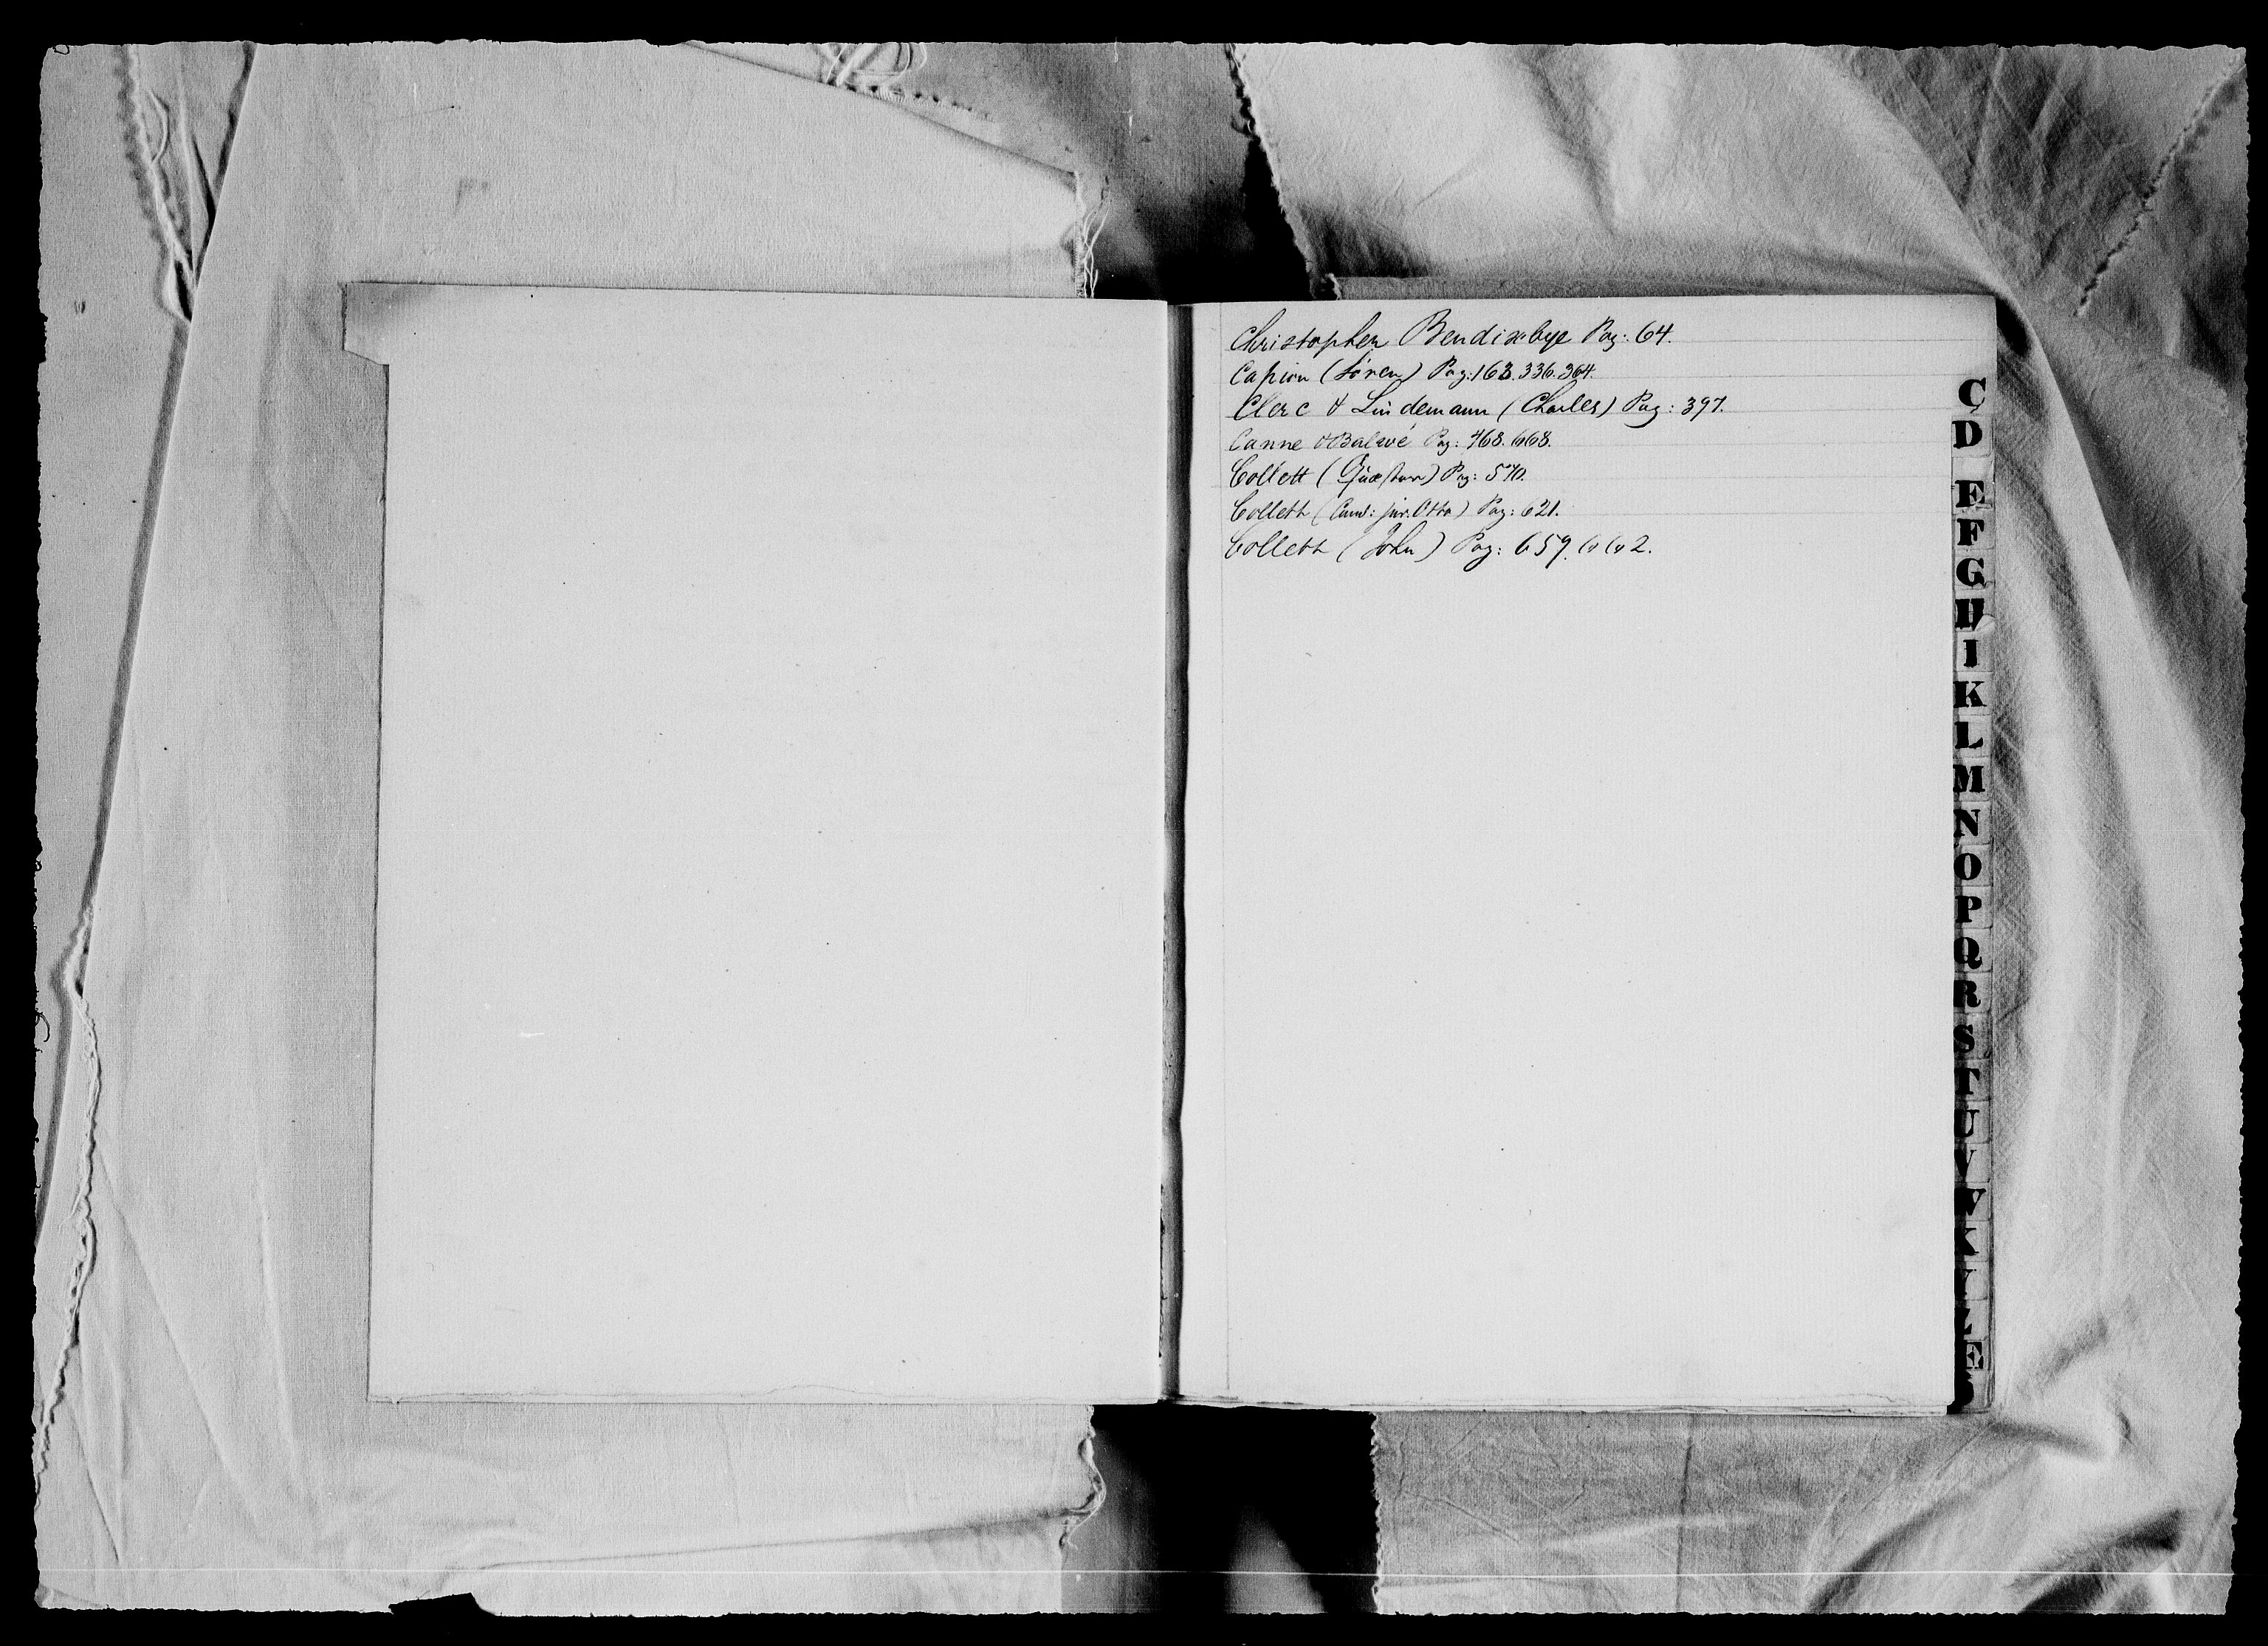 Christopher Bendixbye Pag: 64.
Capion (Sören) Pag: 163. 336. 364.
Clerc & Lindemann (Charles) Pag: 397.
Canne & Balwé Pag: 468. 668.
Collett (Quæstor) Pag: 570.
Colleth (Cand: jur. Otto) Pag: 621.
Colleth (John) Pag: 659. 662.
C
D
E
F
G
H
I
K
L
M
N
O
P
Q
R
S
T
U
V